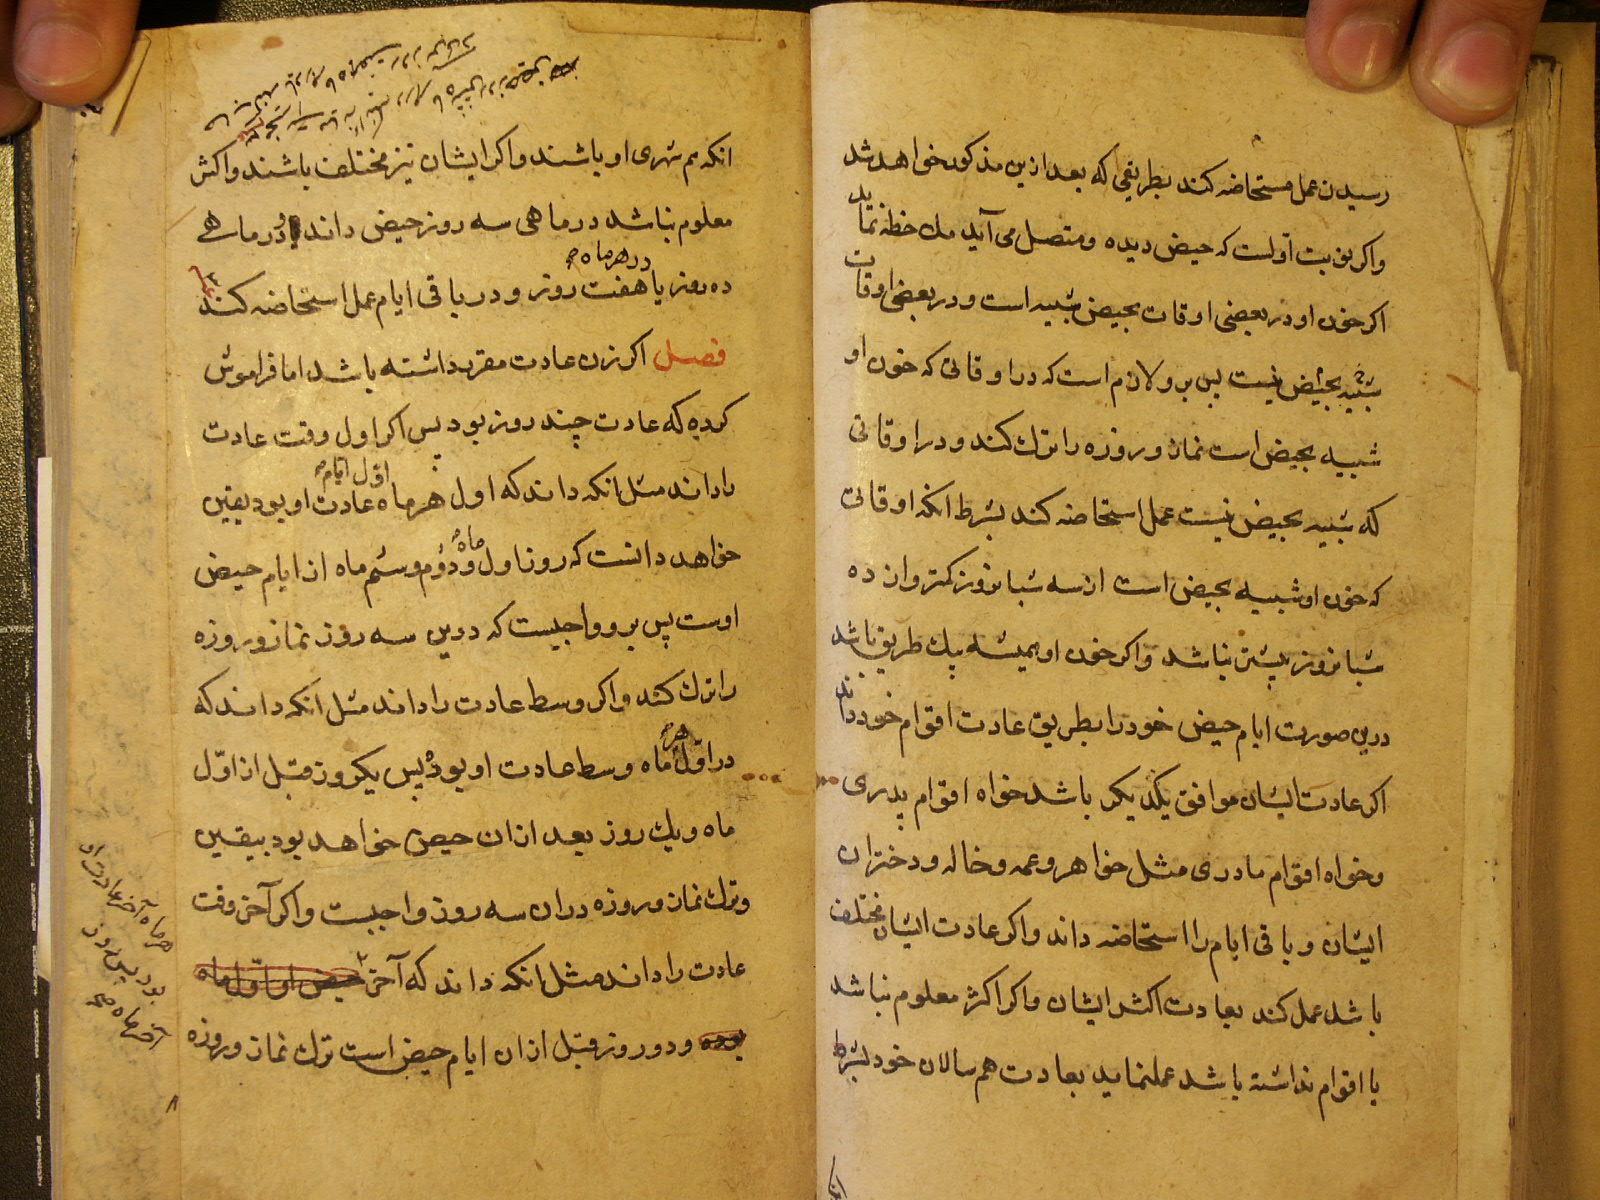 رسیدن عمل مستحاضه کند بطریقی که بعد ازین مذکور خواهد شد
واکر نوبت اولست که حیض دیده و متصل می آید ملاحظه نماید
اکر خون او در بعضی اوقات بحیض شبیه است و در بعضی اوقات
شبیه بحیض نیست پس برو لازم است که در اوقاتی که خون او
شبیه بحیض است نماز و روزه را ترك کند و در اوقاتی
که شبیه بحیض نیست عمل استحاضه کند بشرط انکه اوقاتی
که خون او شبیه بحیض است از سه شبانروز کمتر و از ده
شبانروز بیشتر نباشد واکر خون او همیشه بیك طریق باشد
درین صورت ایام حیض خود را بطریق عادت اقوام خود داند
اکر عادت ایشان موافق یکدیکر باشد خواه اقوام پدری
وخواه اقوام مادری مثل خواهر و عمه و خاله و دختران
ایشان و باقی ایام را استحاضه داند واکر عادت ایشان مختلف
باشد عمل کند بعادت اکثر ایشان واکر اکثر معلوم نباشد
یا اقوام نداشته باشد عملنماید بعادت هم سالان خود بشرط
انکه هم شهری او باشند واکر ایشان نیز مختلف باشند واکثر
معلوم نباشد در ماهی سه روز حیض داند و در ماهی
در هر ماه
ده روز یا هفت روز و در باقی ایام عمل استحاضه کند
فصل اکر زن عادت مقرر داشته باشد اما فراموش
کرده که عادت چند روز بود پس اکر اول وقت عادت
اول ایام
را داند مثل انکه داند که اول هر ماه عادت او بود بیقین
ماه
خواهد دانست که روز اول و دوم و سیم ماه از ایام حیض
اوست پس برو واجبست که درین سه روز نماز و روزه
را ترك کند واکر وسط عادت را داند مثل آنکه داند که
هر
در اول ماه وسط عادت او بود پس یکروز قبل از اول
ماه و یك روز بعد از ان حیض خواهد بود بیقین
وترك نماز و روزه در ان سه روز واجبست واکر آخر وقت
عادت را داند مثل انکه داند که آخر حیض او اول ماه
بوده و دو روز قبل از ان ایام حیض است ترك نماز و روزه
هر ماه آخر عادت او
بود پس روز
آخر ماه